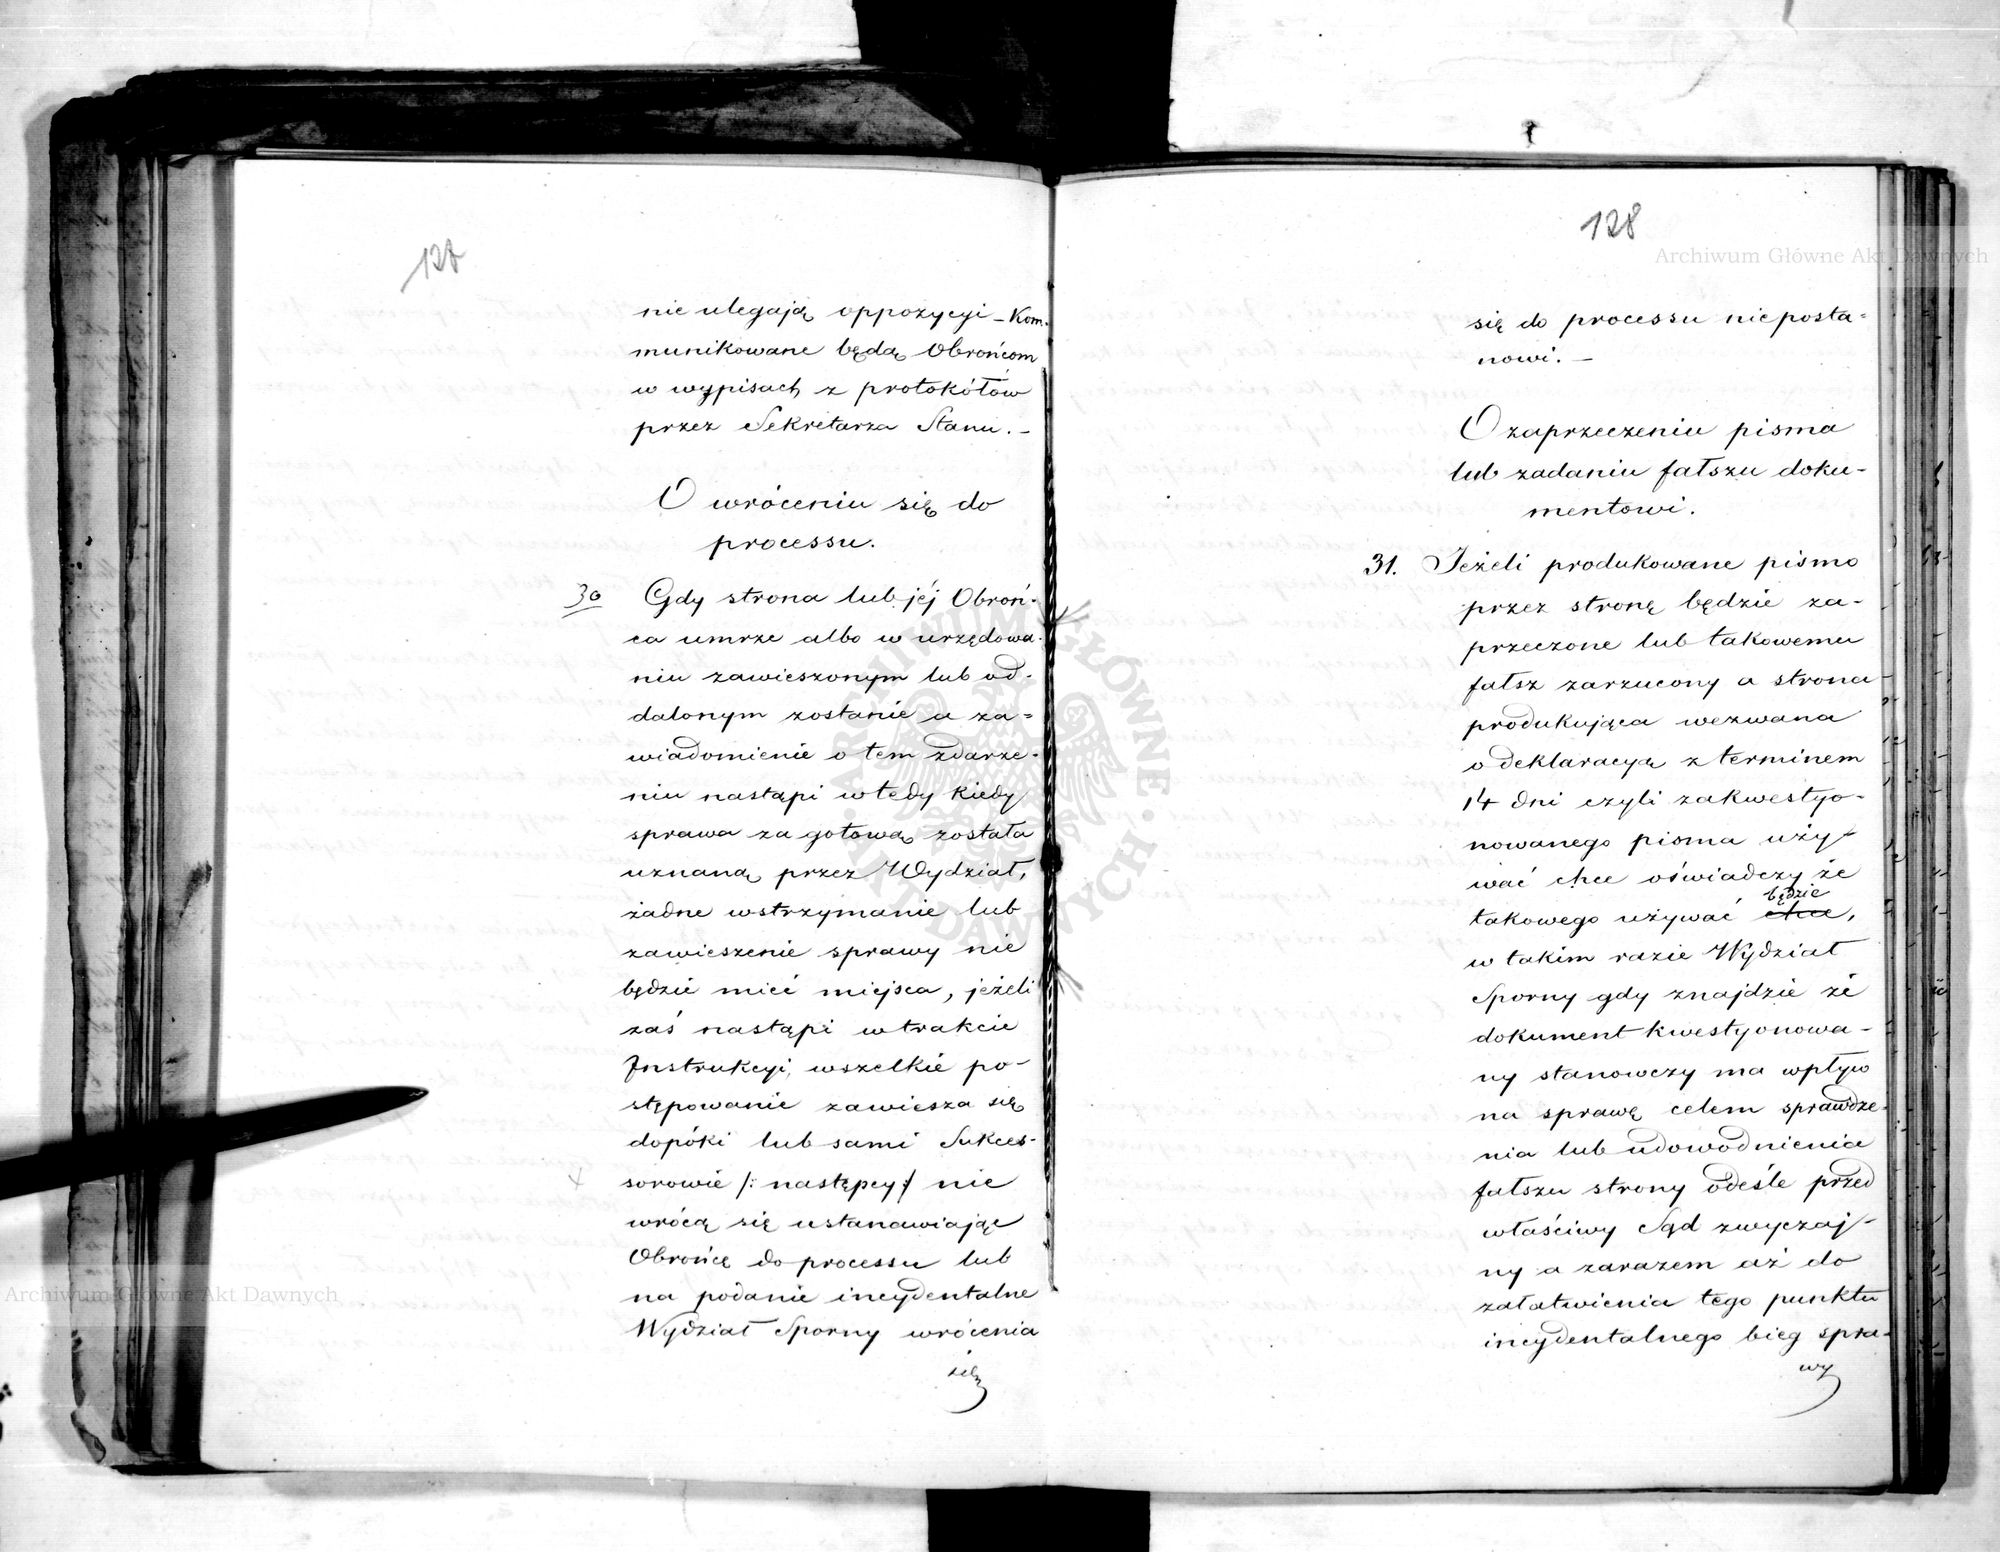 127
nie ulegają oppozycyi – Kom-
munikowane będą Obrońcom
w wypisach z protokółów
przez Sekretarza Stanu. –
O wróceniu się do
processu.
30 Gdy strona lub jéj Obroń-
ca umrze albo w urzędowa-
niu zawieszonym lub od-
dalonym zostanie a za=
wiadomienie o tem zdarze-
niu nastąpi wtedy kiedy
sprawa za gotową została
uznaną przez Wydział,
żadne wstrzymanie lub
zawieszenie sprawy nie
będzie mieć miejsca, jeżeli
zaś nastąpi w trakcie
Instrukcyi, wszelkie po-
stępowanie zawiesza się
dopóki lub sami Sukces-
sorowie /: następcy :/ nie
wrócą się ustanawiając
Obrońcę do processu lub
na podanie incydentalne
Wydział Sporny wrócenia
się
128
się do processu nieposta=
nowi. –
O zaprzeczeniu pisma
lub zadaniu fałszu doku-
mentowi.
31. Jeżeli produkowane pismo
przez stronę będzie za-
przeczone lub takowemu
fałsz zarzucony a strona
produkująca wezwana
o deklaracyą z terminem
14 dni czyli zakwestyo-
nowanego pisma uży-
wać chce oświadczy że
będzie
takowego używać chce,
w takim razie Wydział
Sporny gdy znajdzie że
dokument kwestyonowa-
ny stanowczy ma wpływ
na sprawę celem sprawdze-
nia lub udowodnienia
fałszu strony odeśle przed
właściwy Sąd zwyczaj-
ny a zarazem aż do
załatwienia tego punktu
incydentalnego bieg spra-
wy
Archiwum Główne Akt Dawnych
Archiwum Główne Akt Dawnych
ARCHIWUM GŁÓWNE AKT DAWNYCH